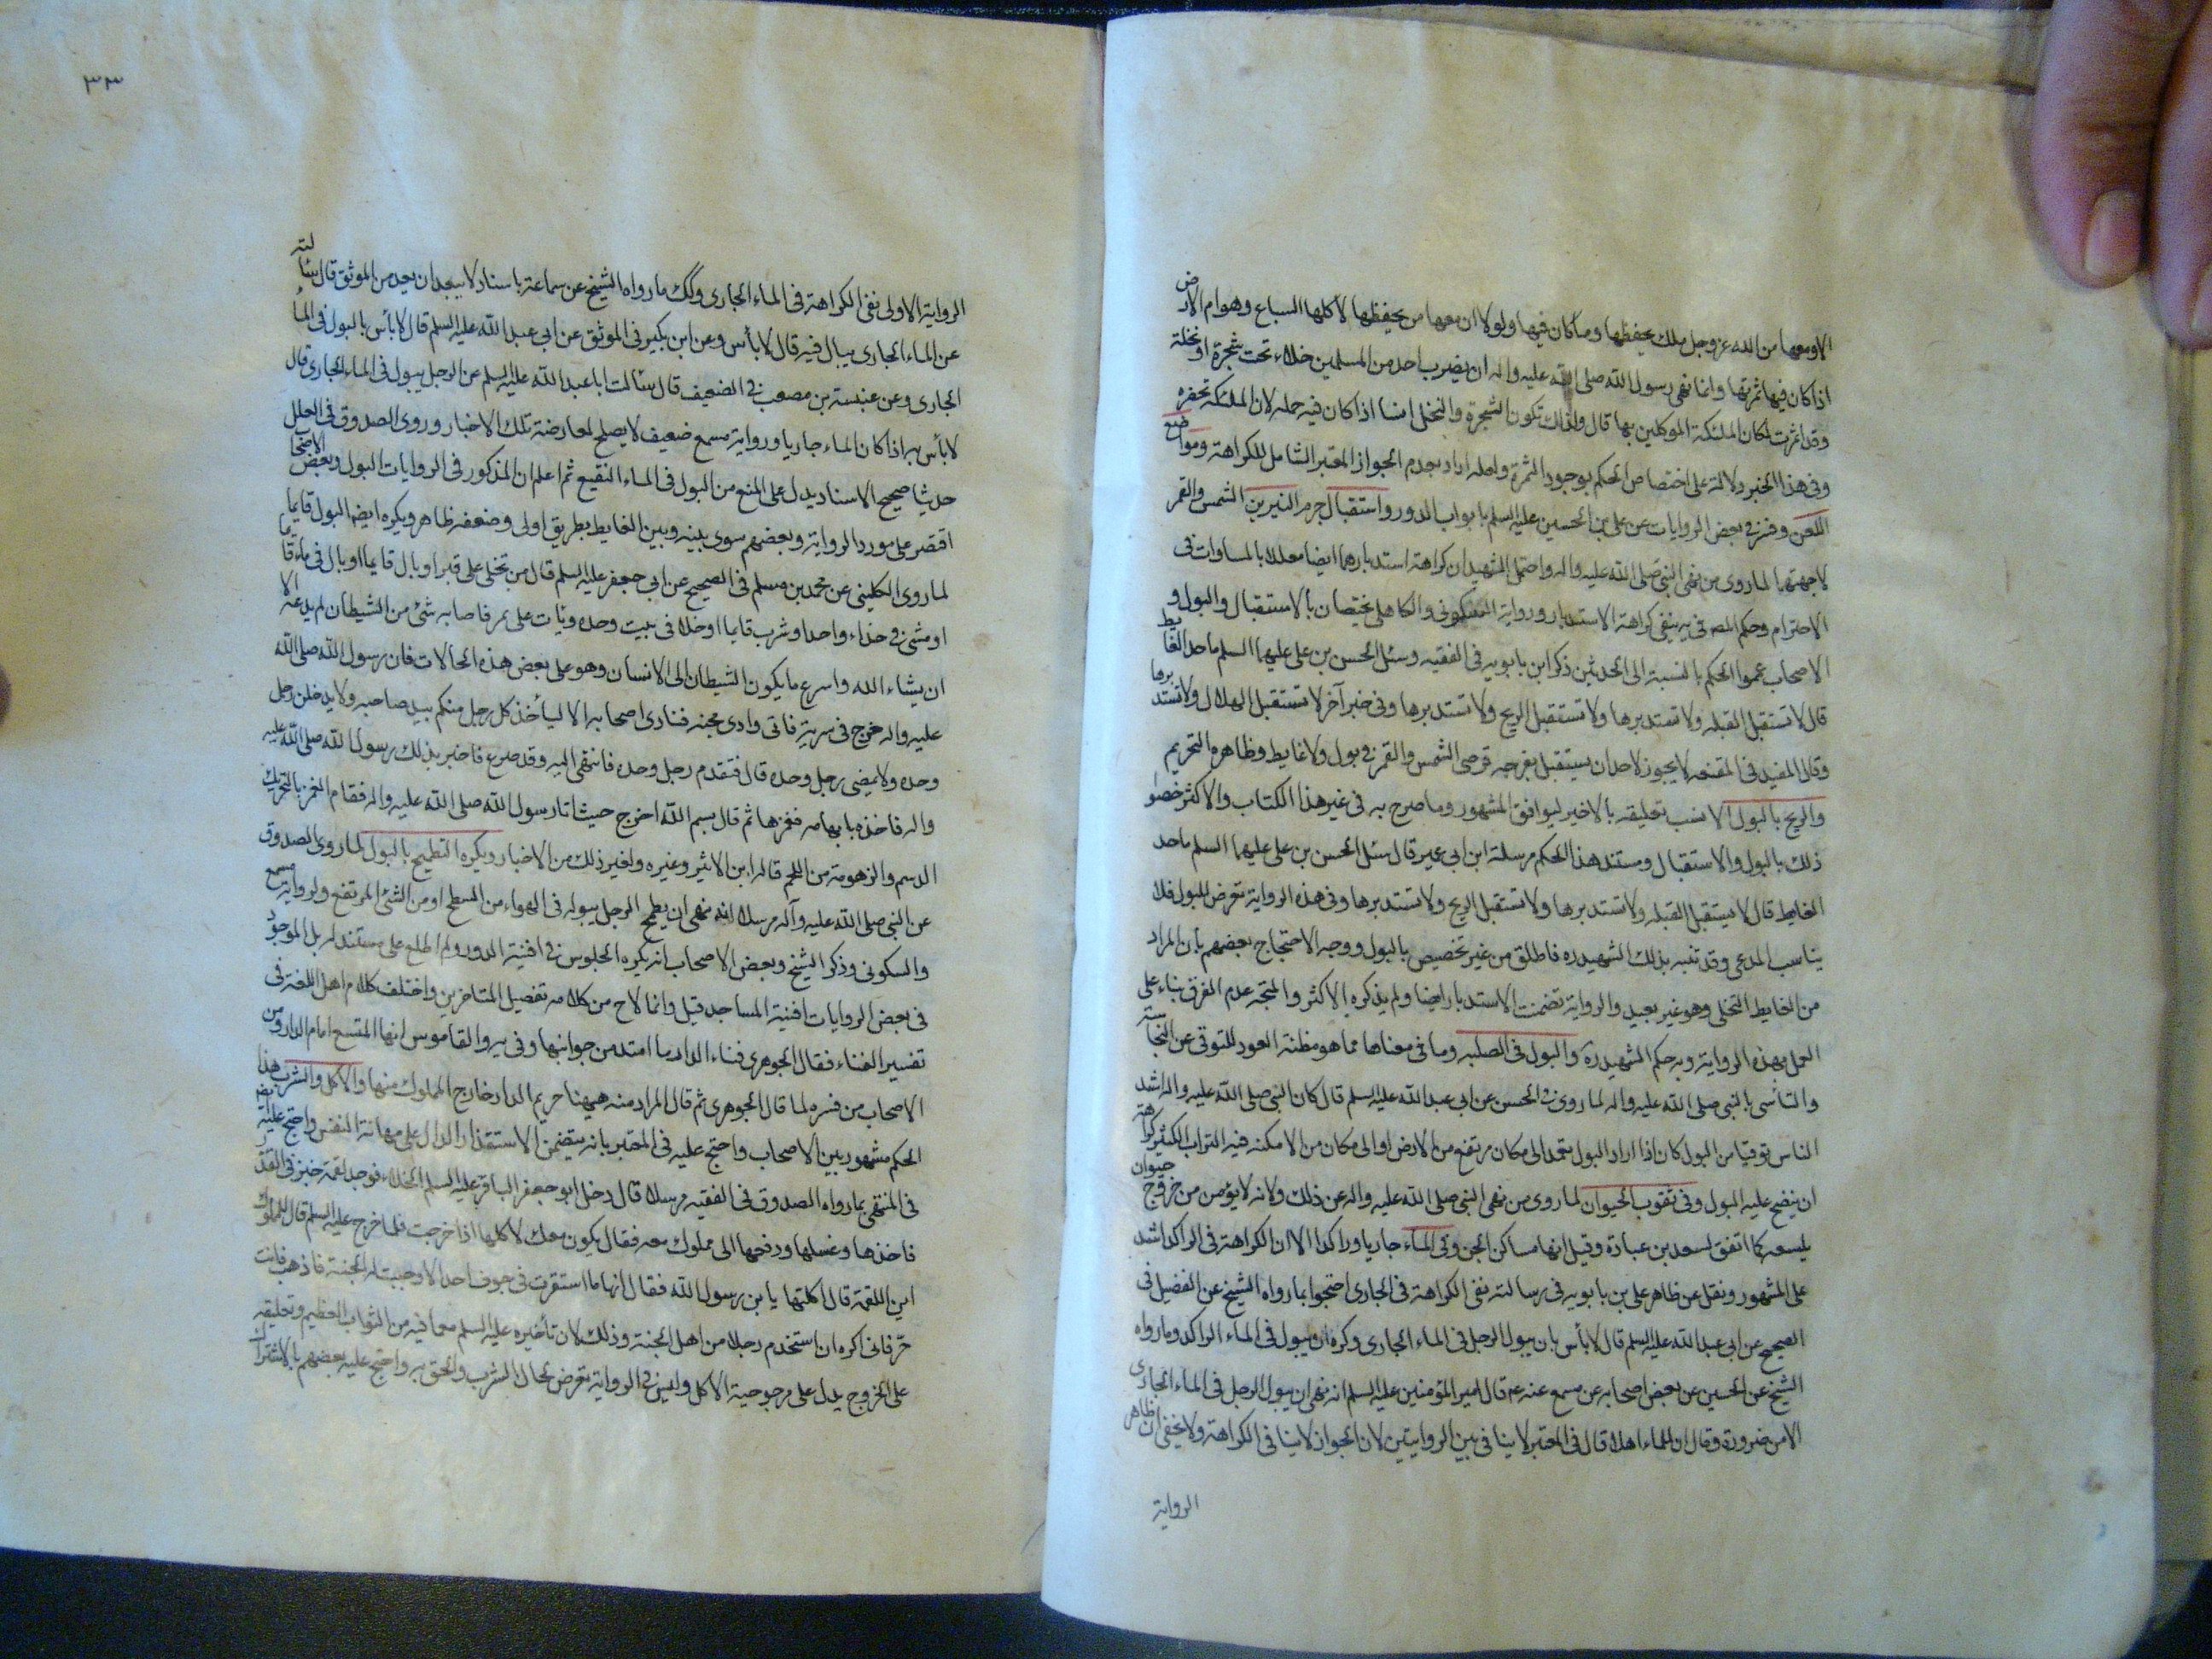 الا ومعها من الله عز وجل ملك يحفظها وما كان فيها ولولا ان معها من يحفظها لاكلها السباع وهوام الارض
اذا كان فيها ثمرتها وانما نهى رسول الله صلى الله عليه واله ان يضرب احد من المسلمين خلاء تحت شجرة او نخلة
وقد اثمرت لمكان الملئكة الموكلين بها قال ولذلك تكون الشجرة والنخل انسا اذا كان فيه حمله لان الملئكة تحضره
وفى هذا الخبر دلالة على اختصاص الحكم بوجود الثمرة ولعله اراد بعدم الجواز المعتبر الشامل للكراهة ومواضع
اللعن وفسر في بعض الروايات عن على بن الحسين عليه السلم بابواب الدور واستقبال جرم النيرين الشمس والقمر
لا جهتهما لما روى من نهى النبى صلى الله عليه واله واحتمل الشهيد ان كراهة استدبارهما ايضا معللا بالمساوات فى
الاحترام وحكم المص في يه بنفى كراهة الاستدبار ورواية السكونى والكاهلى يختصان بالاستقبال والبول و
الاصحاب عمموا الحكم بالنسبة الى الحدثين ذكر ابن بابويه فى الفقيه وسئل الحسن بن على عليهما السلم ما حد الغايط
قال لا تستقبل القبله ولا تستدبرها ولا تستقبل الريح ولا تستدبرها وفى خبر آخر لا تستقبل الهلال ولا تستدبرها
وقال المفيد فى المقنعه لا يجوز لاحد ان يستقبل بفرجه قرصى الشمس والقمر في بول ولا غايط وظاهره التحريم
والريح بالبول الانسب تعليقه بالاخير ليوافق المشهور وما صرح به فى غير هذا الكتاب والاكثر خصوا
ذلك بالبول والاستقبال ومستند هذا الحكم مرسلة ابن ابى عمير قال سئل الحسن بن على عليهما السلم ما حد
الغايط قال لا يستقبل القبله ولا تستدبرها ولا تستقبل الريح ولا تستدبرها وفى هذه الرواية تعرض للبول فلا
يناسب المدعى وقد تنبه بذلك الشهيد ره فاطلق من غير تخصيص بالبول ووجه الاحتجاج بعضهم بان المراد
من الغايط التخلى وهو غير بعيد والرواية تضمنت الاستدبار ايضا ولم يذكره الاكثر والمتجه عدم الفرق بناء على
العمل بهذه الرواية وبه حكم الشهيد ره والبول فى الصلبه وما فى معناها مما هو مظنة العود للتوقى عن النجاسته
والتاسى بالنبى صلى الله عليه واله لما روى في الحسن عن ابى عبد الله عليه السلم قال كان النبى صلى الله عليه واله اشد
الناس توقيا من البول كان اذا اراد البول تعمد الى مكان مرتفع من الارض او الى مكان من الامكنه فيه التراب الكثير كراهة
ان ينضح عليه البول وفى ثقوب الحيوان لما روى من نهى النبى صلى الله عليه واله عن ذلك ولانه لا يؤمن من خروج حيوان
يلسعه كما اتفق لسعد بن عبادة وقيل انها مساكن الجن وفى الماء جاريا وراكدا الا ان الكراهة فى الراكد اشد
على المشهور ونقل عن ظاهر على بن بابويه فى رسالته نفى الكراهة فى الجارى احتجوا بما رواه الشيخ عن الفضيل فى
الصحيح عن ابى عبد الله عليه السلم قال لا بأس بان يبول الرجل فى الماء الجارى وكره ان يبول فى الماء الراكد وما رواه
الشيخ عن الحسين عن بعض اصحابه عن مسمع عنه عم قال امير المؤمنين عليه السلم انه نهى ان يبول الرجل فى الماء الجارى
الا من ضرورة وقال ان للماء اهلا قال فى المعتبر لا ينافى بين الروايتين لان الجواز لا ينافى الكراهة ولا يخفى ان ظاهر
الرواية
٣٣
الرواية الاولى نفى الكراهة فى الماء الجارى وكك ما رواه الشيخ عن سماعة باسناد لا يبعد ان يعد من الموثق قال سئالته
عن الماء الجارى يبال فيه قال لا بأس وعن ابن بكير فى الموثق عن ابى عبد الله عليه السلم قال لا بأس بالبول فى الماء
الجارى وعن عنبسة بن مصعب في الضعيف قال سئالت ابا عبد الله عليه السلم عن الرجل يبول فى الماء الجارى قال
لا بأس به اذا كان الماء جاريا ورواية مسمع ضعيف لا يصلح لمعارضة تلك الاخبار وروى الصدوق فى العلل
حديثا صحيح الاسناد يدل على المنع من البول فى الماء النقيع ثم اعلم ان المذكور فى الروايات البول وبعض الاصحاب
اقتصر على مورد الرواية وبعضهم سوى بينه وبين الغايط بطريق اولى وضعفه ظاهر ويكره ايضا البول قايما
لما روى الكلينى عن محمد بن مسلم فى الصحيح عن ابى جعفر عليه السلم قال من تخلى على قبر او بال قايما او بال فى ماء قايما
او مشى في حذاء واحد او شرب قايما او خلا فى بيت وحده وبات على غمر فاصابه شئ من الشيطان لم يدعه الا
ان يشاء الله واسرع ما يكون الشيطان الى الانسان وهو على بعض هذه الحالات فان رسول الله صلى الله
عليه واله خرج فى سرية فاتى وادى مجنه فنادى اصحابه الا ليأخذ كل رجل منكم بيد صاحبه ولا يدخلن رجل
وحده ولا يمضى رجل وحده قال فتقدم رجل وحده فانتهى اليه وقد صرع فاخبر بذلك رسول الله صلى الله عليه
واله فاخذه بابهامه فغمزها ثم قال بسم الله اخرج حيث انا رسول الله صلى الله عليه واله فقام الغمر بالتحريك
الدسم والزهومة من اللحم قاله ابن الاثير وغيره ولغير ذلك من الاخبار ويكره التطميح بالبول لما روى الصدوق
عن النبى صلى الله عليه وآله مرسلا انه نهى ان يطمح الرجل ببوله فى الهواء من السطح او من الشئ المرتفع ولرواية مسمع
والسكونى وذكر الشيخ وبعض الاصحاب انه يكره الجلوس في افنية الدور ولم اطلع على مستند له بل الموجود
فى بعض الروايات افنية المساجد قيل وانما لاح من كلامه تفصيل المتاخرين واختلف كلام اهل اللغة فى
تفسير الفناء فقال الجوهرى فناء الدار ما امتد من جوانبها وفى يه والقاموس انها المتسع امام الدار ومن
الاصحاب من فسره لما قال الجوهرى ثم قال المراد منه هيهنا حريم الدار خارج المملوك منها والاكل والشرب هذا
الحكم مشهور بين الاصحاب واحتج عليه فى المعتبر بانه يتضمن الاستقذار الدال على مهانة النفس واحتج عليه ايضا
فى المنتهى بما رواه الصدوق فى الفقيه مرسلا قال دخل ابو جعفر الباقر عليه السلم الخلاء فوجد لقمة خبز فى القذر
فاخذها وغسلها ودفعها الى مملوك معه فقال يكون معك لاكلها اذا خرجت فلما خرج عليه السلم قال للمملوك
اين اللقمة قال اكلتها يا بن رسول الله فقال انها ما استقرت فى جوف احد الا وجبت له الجنة فاذهب فانت
حر فانى اكره ان استخدم رجلا من اهل الجنة وذلك لان تأخيره عليه السلم مع ما فيه من الثواب العظيم وتعليقه
على الخروج يدل على مرجوحية الاكل وليس في الرواية تعرض لحال الشرب والحق به واحتج عليه بعضهم بالاشتراك